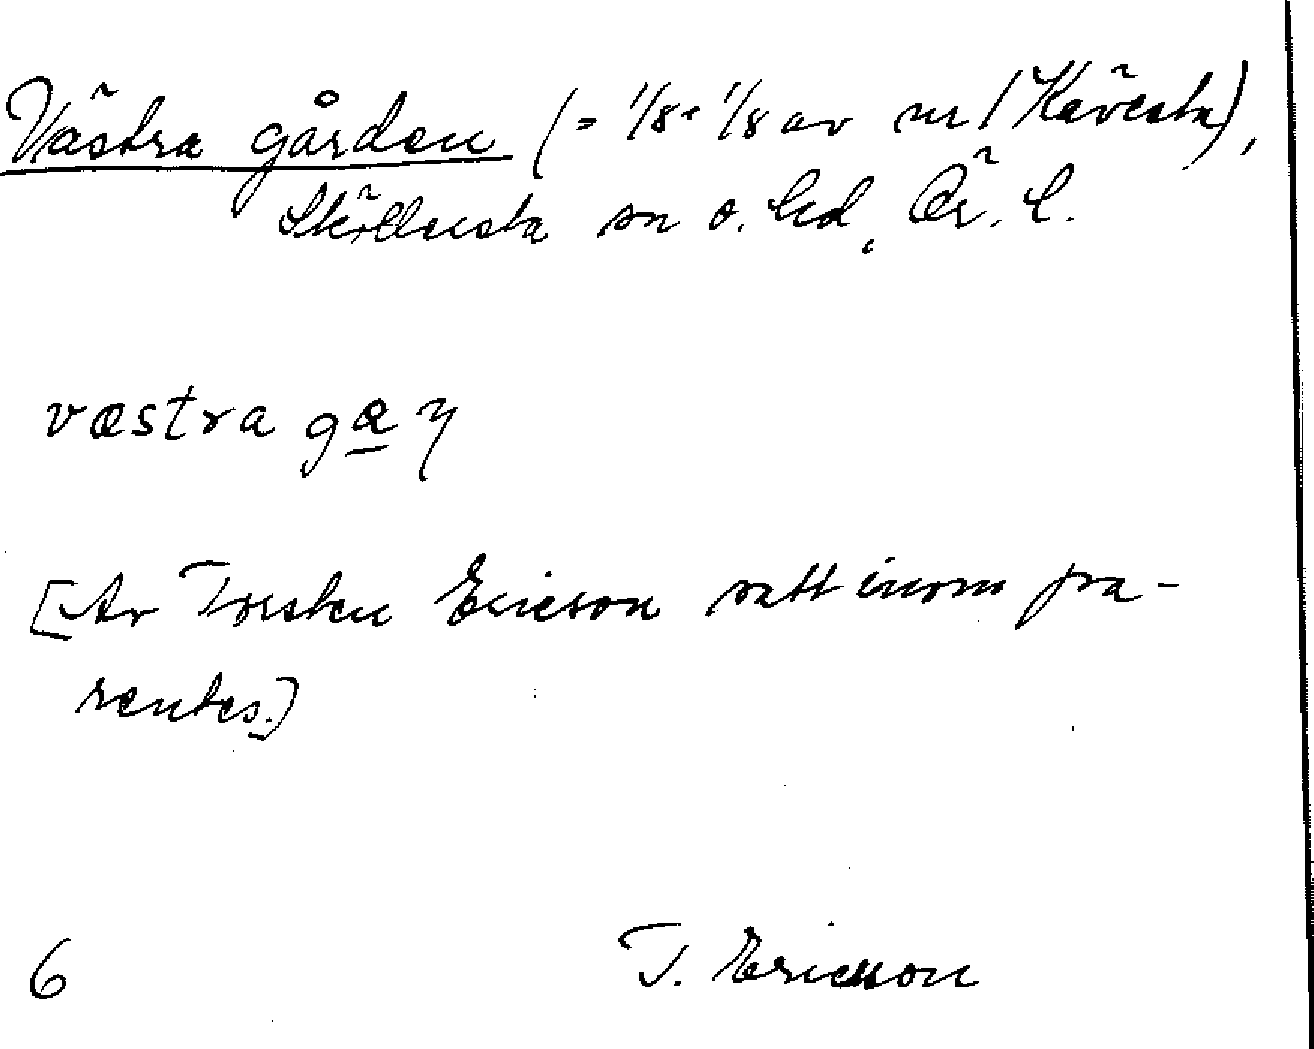 Västra gården (= 1/8 + 1/8 av nr 1 Kävesta),
Sköllersta sn o. hd, Ör. l.
væstra ga̲ η
[Av Torsten Ericson satt inom pa-
rentes.]
6 T. Ericsson